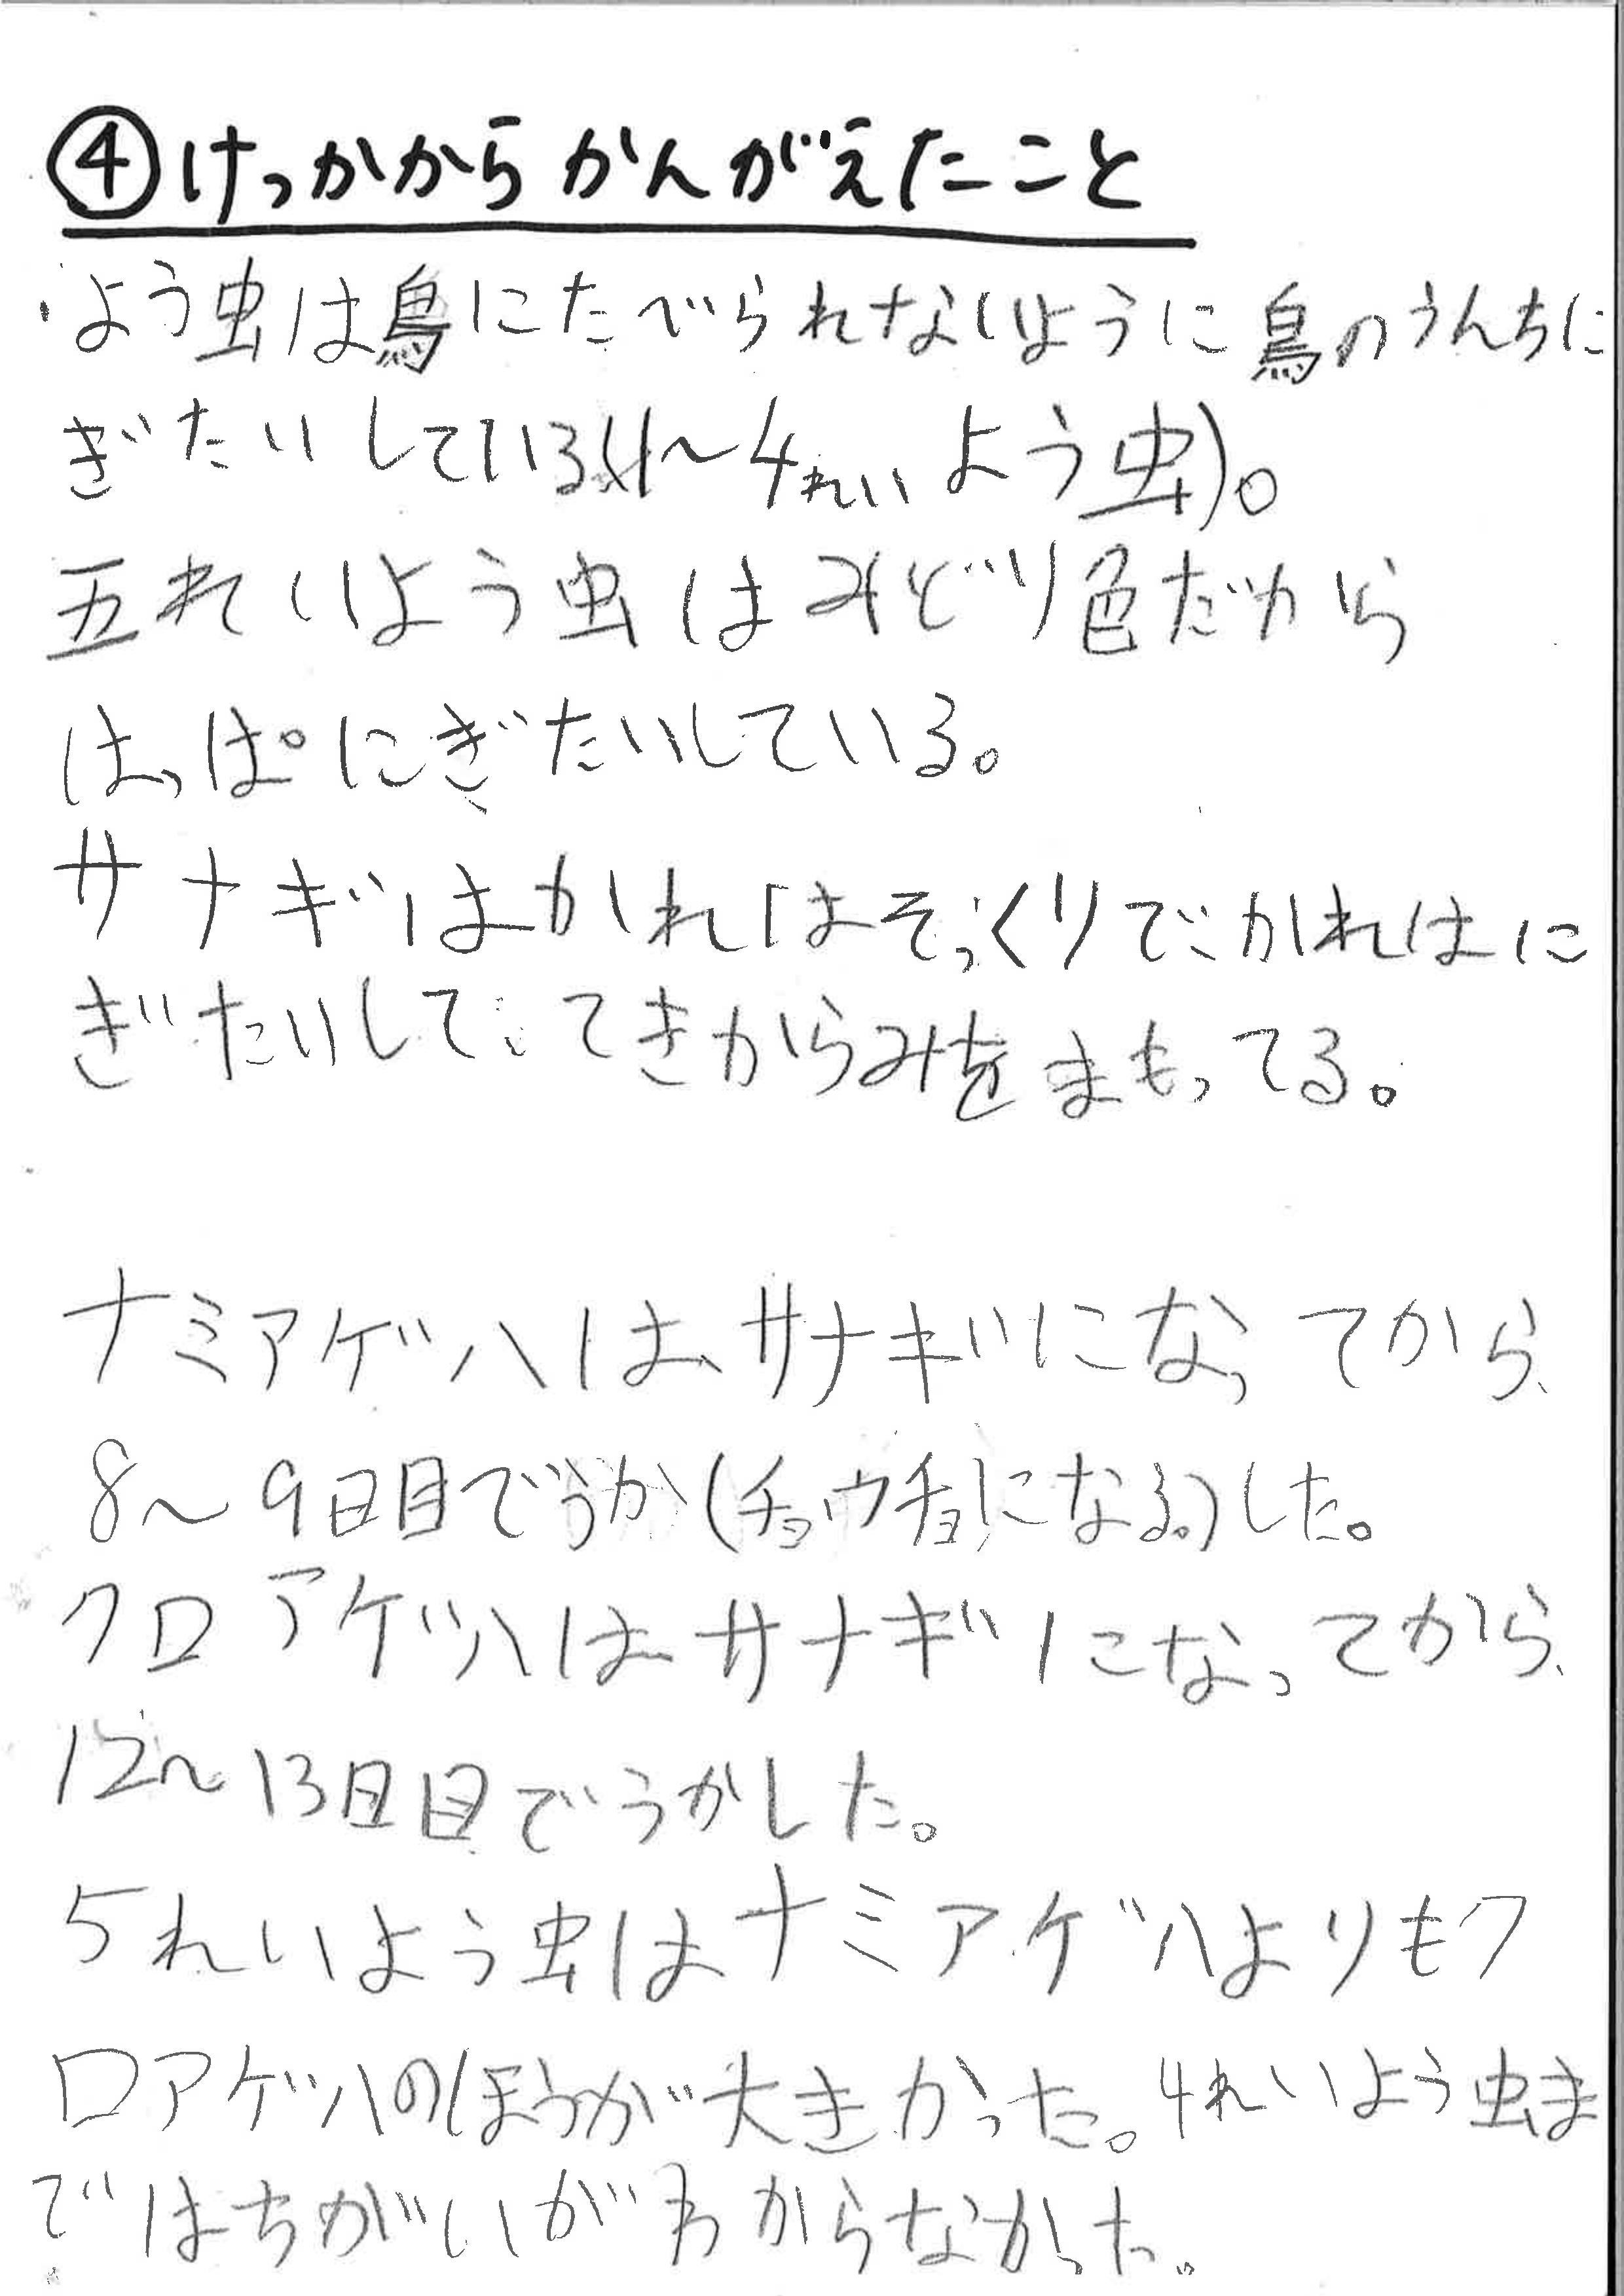 ④けっかからかんがえたこと
・よう虫は鳥にたべられないように鳥のうんちに
ぎたいしている(1〜4れいよう虫)。
五れいよう虫はみどり色だから
はっぱにぎたいしている。
サナギはかれはそっくりでかれはに
ぎたいして、てきからみをまもってる。
ナミアゲハは、サナギになってから、
8〜9日目でうか(チョウチョになる。)した。
クロアゲハは、サナギになってから、
12〜13日目でうかした。
5れいよう虫はナミアゲハよりもク
ロアゲハのほうが大きかった。4れいよう虫ま
ではちがいがわからなかった。